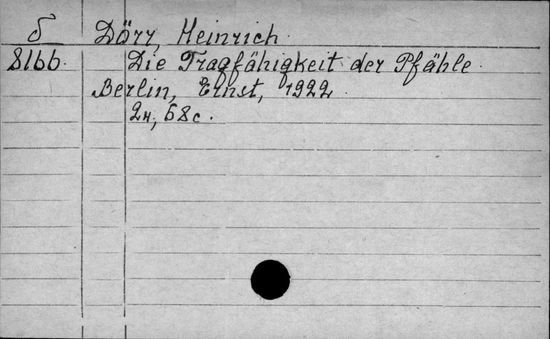 δ Dörr, Heinrich
8166. Die Tragfähigkeit der Pfähle.
Berlin, Ernst, 1922
2н, 68с.